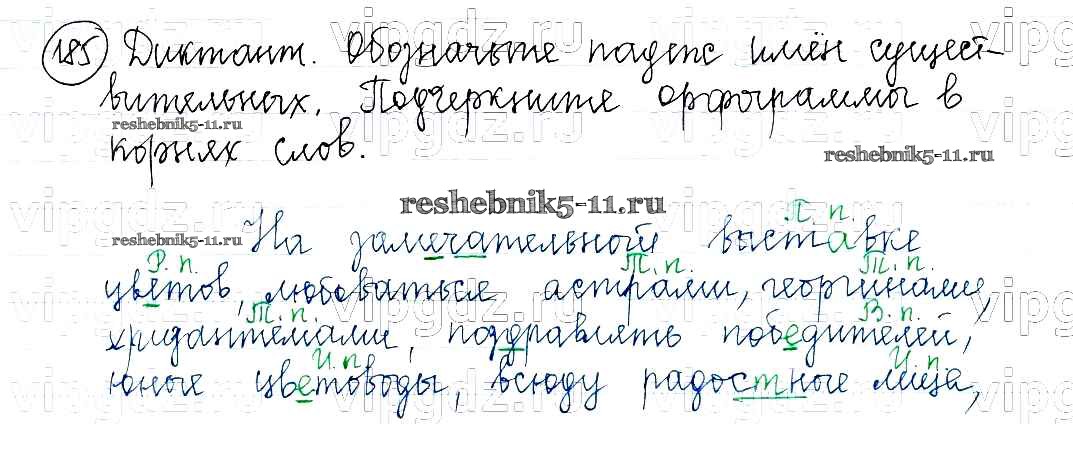 185 Диктант. Обозначьте падеж имён сущест-
вительных. Подчеркните орфограммы в
reshebnik5-11.ru
корнях слов.
reshebnik5-11.ru
reshebnik5-11.ru
П. п.
reshebnik5-11.ru На замечательной выставке
Р. п. Т. п. Т. п.
цветов, любоваться астрами, георгинами,
Т. п. В. п.
хризантемами, поздравлять победителей,
И. п. И. п.
юные цветоводы, всюду радостные лица,
vipgdz.ru